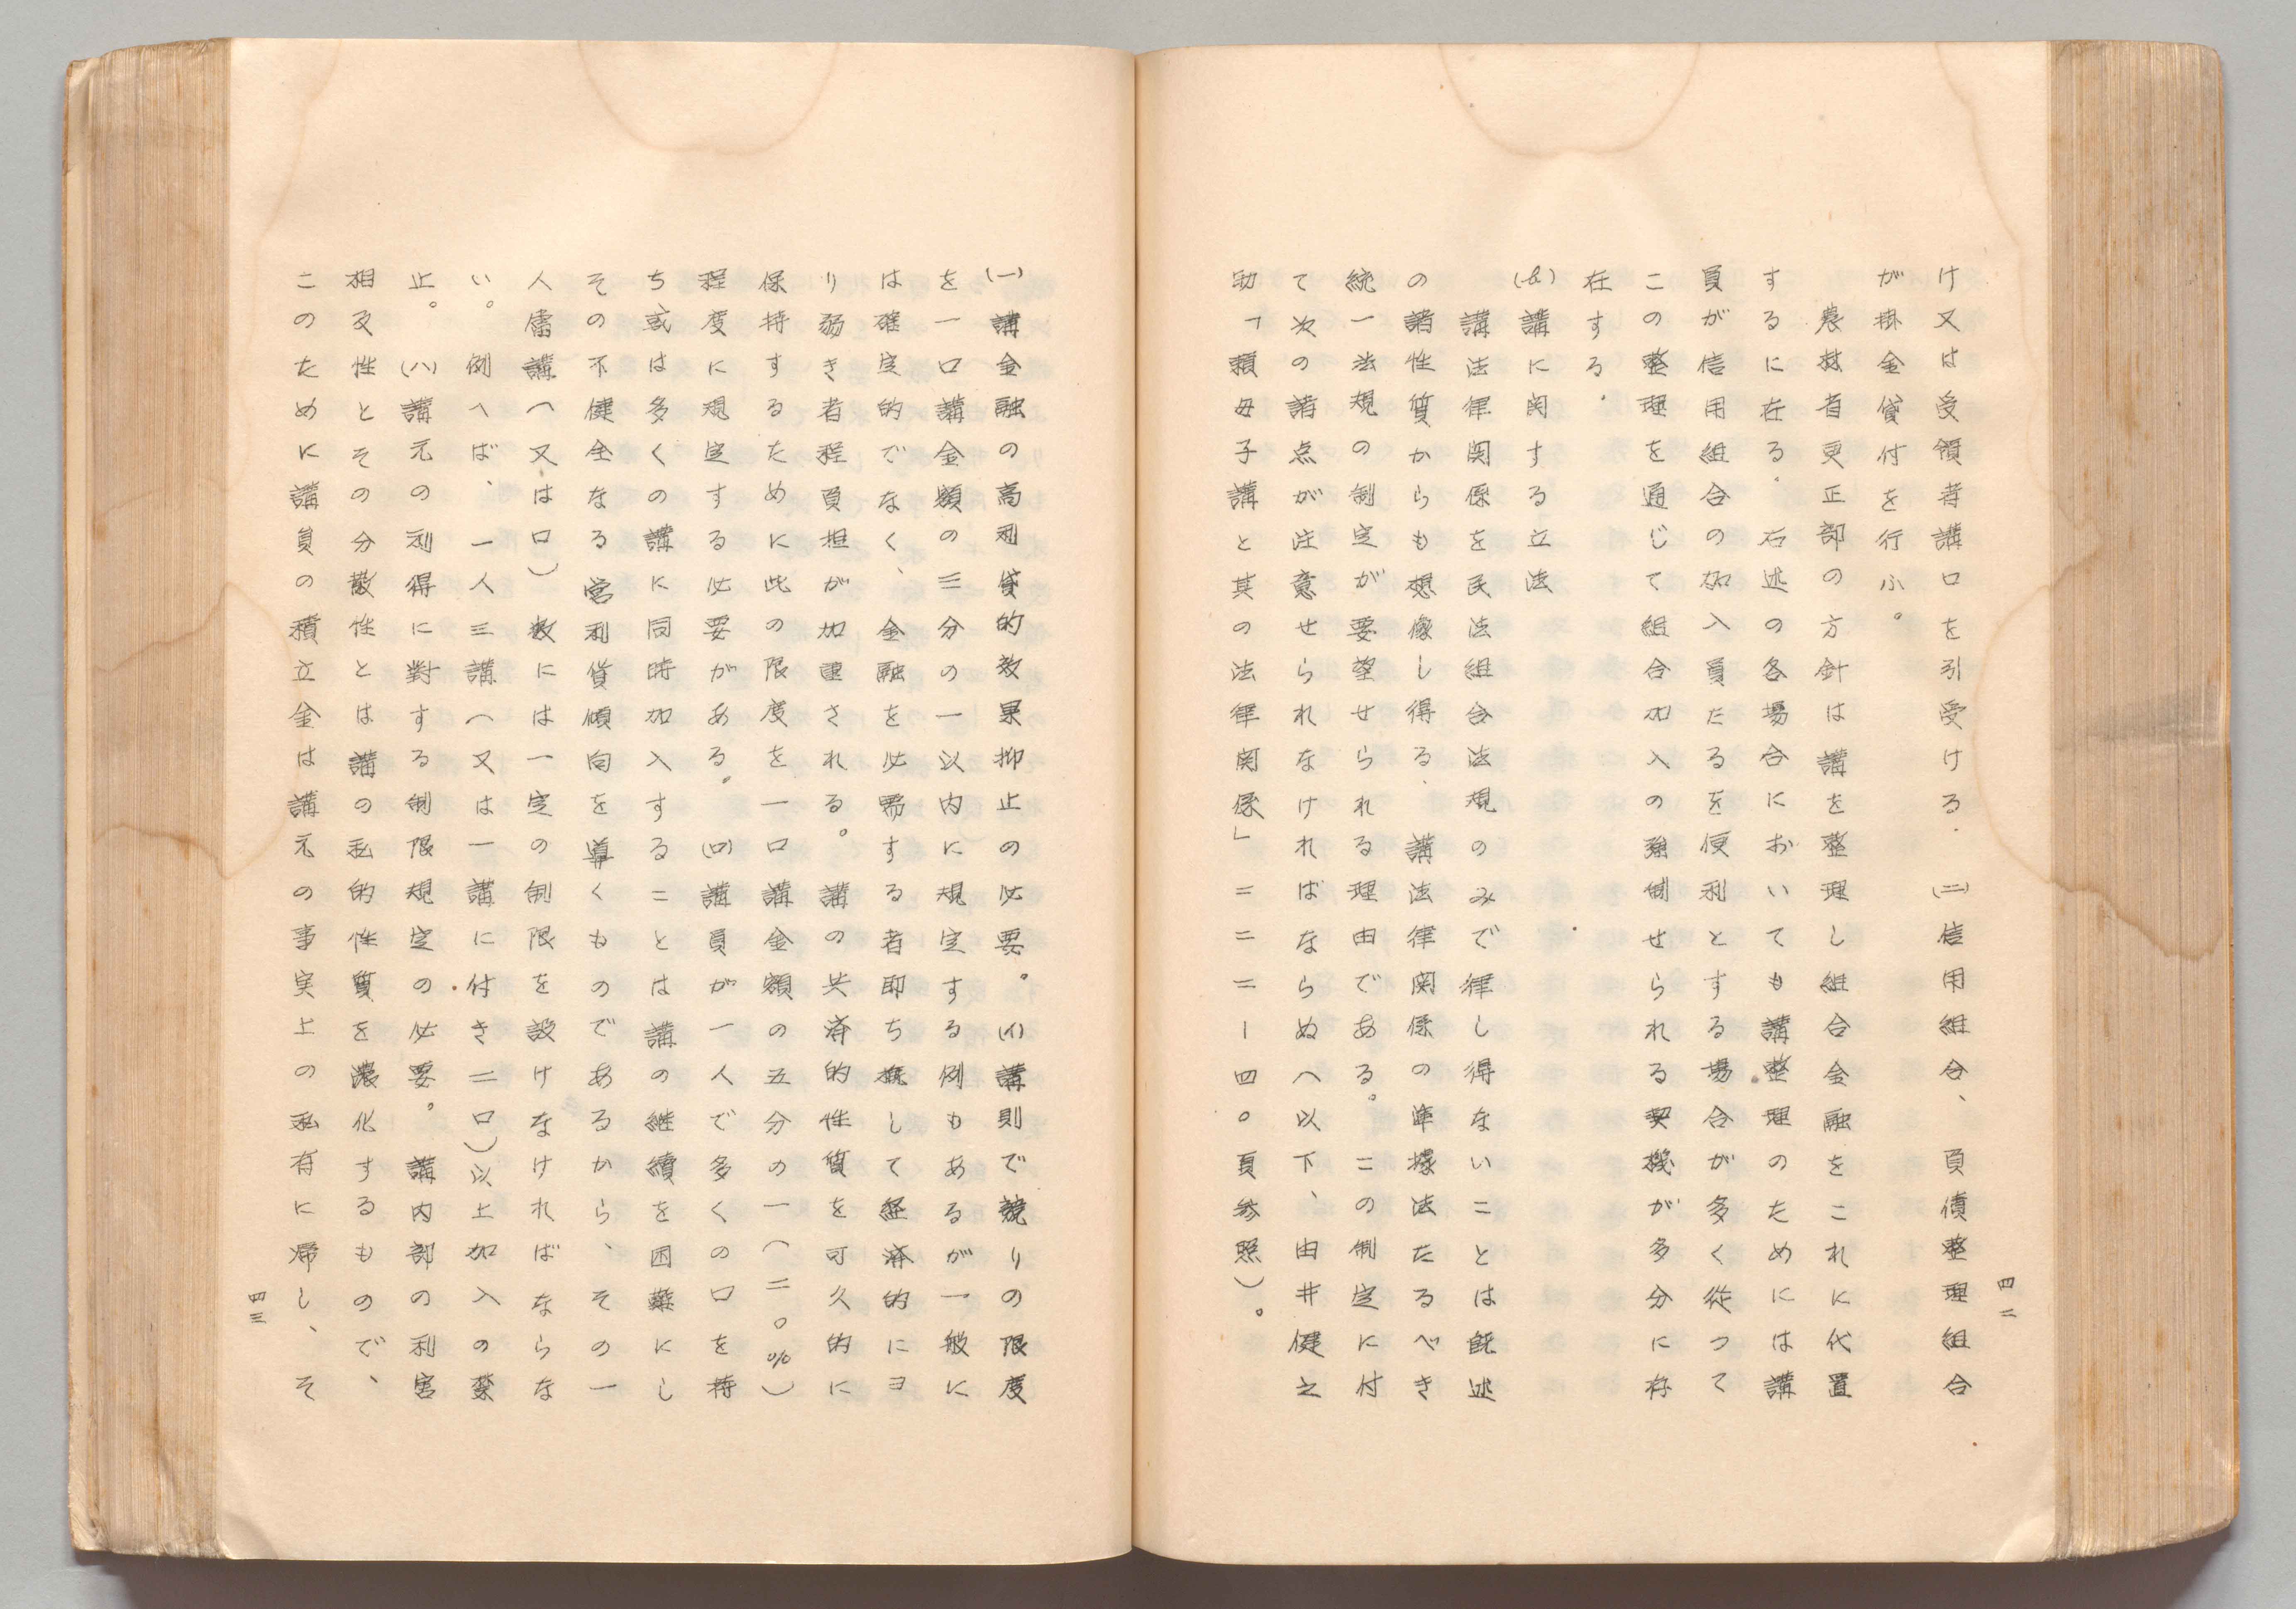 四二
け又は受領者講口を引受ける．　(二)信用組合、負債整理組合
が掛金貸付を行ふ。
農林省更正部の方針は講を整理し組合金融をこれに代置
するに在る．右述の各場合においても講整理のためには講
員が信用組合の加入員たるを便利とする場合が多く従つて
この整理を通じて組合加入の強制せられる契機が多分に存
在する．
講に関する立法
講法律関係を民法組合法規のみで律し得ないことは既述
の諸性質からも想像し得る．講法律関係の準據法たるべき
統一法規の制定が要望せられる理由である。この制定に付
て次の諸点が注意せられなければならぬ（以下、由井健之
助「頼母子講と其の法律関係」二二二ー四〇頁参照）。
(一)講金融の高利貸的效果抑止の必要。(イ)講則で競りの限度
を一口講金額の三分の一以内に規定する例もあるが一般に
は確定的でなく、金融を必需する者即ち概して経済的にヨ
リ弱き者程負担が加重される。講の共済的性質を可久的に
保持するために此の限度を一口講金額の五分の一（二〇％）
程度に規定する必要がある。(ロ)講員が一人で多くの口を持
ち或は多くの講に同時加入することは講の継續を困難にし
その不健全なる営利貸傾向を導くものであるから、その一
人當講（又は口）数には一定の制限を設けなければならな
い。例へば、一人三講（又は一講に付き二口）以上加入の禁
止。(ハ)講元の利得に對する制限規定の必要。講内部の利害
相反性とその分散性とは講の私的性質を濃化するもので、
このために講員の積立金は講元の事実上の私有に帰し、そ
四三